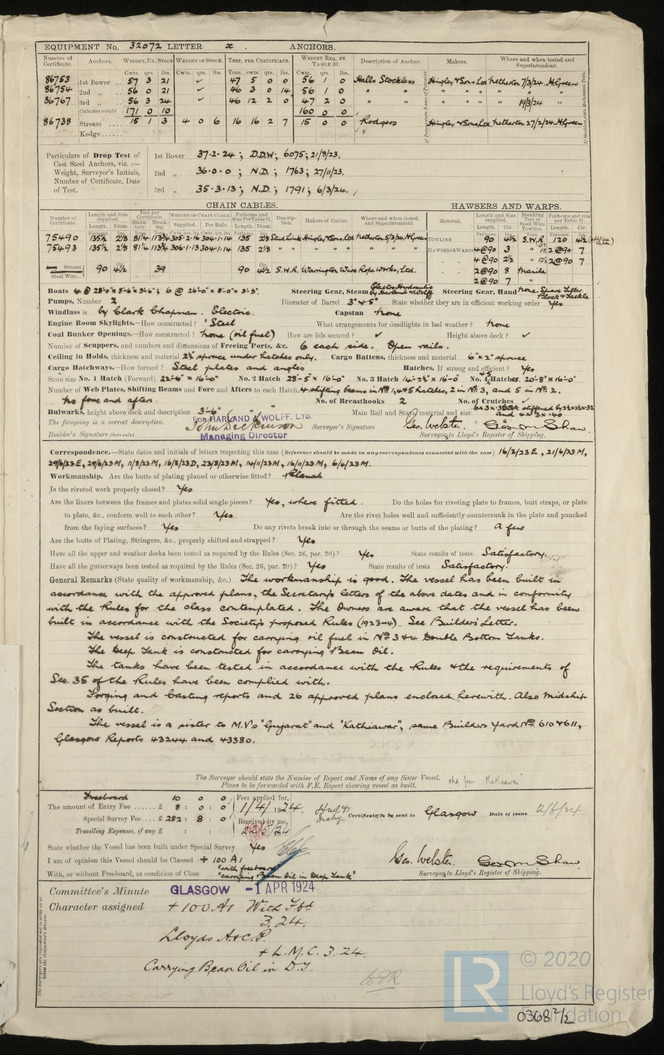 EQUIPMENT No. 32072 LETTER x. ANCHORS.
Number of Certificate. Anchors. Weight, Ex. Stock Weight of Stock. Test, per Certificate. Weight Req. by Table 31. Description of Anchor. Makers. Where and when tested and Superintendent.
Cwts. qrs. lbs. Cwts. qrs. lbs. Tons. cwts. qrs. lbs. Cwts. qrs. lbs.
86753 1st Bower 57 3 21 ✓ 47 5 0 0 56 1 0 Halls Stockless Hingley & Sons Ltd Netherton 7/3/24 McGreen
86754 2nd " 56 0 21 ✓ 46 3 0 14 56 1 0 " " " " "
86767 3rd " 56 3 24 ✓ 46 12 2 0 47 2 0 " " " 19/3/24 "
Collective weight 171 0 10 160 0 0
86738 Stream 15 1 3 4 0 6 16 16 2 7 15 0 0 Rodgers Hingley & Sons Ltd Netherton 27/2/24 McGreen
Kedge
Particulars of Drop Test of Cast Steel Anchors, viz. :— Weight, Surveyor's Initials, Number of Certificate, Date of Test.
1st Bower 37.2.24; D.D.W; 6075; 21/3/23.
2nd " 36.0.0; N.D.; 1763; 27/11/23.
3rd " 35.3.13; N.D.; 1791; 6/3/24.
CHAIN CABLES. HAWSERS AND WARPS.
75490 135½ 2⅛ 135 2⅛ Stud Link Hingley & Sons Ltd Netherton 5/3/24 McGreen
75493 135½ 2⅛ 135 2⅛ " " " " "
TOWLINE 90 4½ S.W.R. 120 4½
HAWSERS & WARPS 4@90 3 " 2@90 7
4@90 2½ " 2@90 7
2@90 8 Manila
2@90 7 "
Stream Steel Wire 90 4½ 39 90 4½ S.W.R. Warrington Wire Rope Works, Ltd.
Steering Gear, Steam Electro Hydraulic by Harland & Wolff Steering Gear, Hand none. Spare Tiller, Block & Tackle
Pumps, Number 2 Diameter of Barrel 3" & 5" State whether they are in efficient working order Yes
Windlass is by Clark Chapman. Electric. Capstan none
Engine Room Skylights.—How constructed? Steel What arrangements for deadlights in bad weather? none
Coal Bunker Openings.—How constructed? none (oil fuel) How are lids secured? ✓ Height above deck? ✓
Number of Scuppers, and numbers and dimensions of Freeing Ports, &c. 6 each side. Open rails.
Ceiling in Holds, thickness and material 2½" spruce under hatches only. Cargo Battens, thickness and material 6" x 2" spruce
Cargo Hatchways.—How formed? Steel plates and angles Hatches. If strong and efficient? Yes
State size No. 1 Hatch (Forward) 22'-6" x 16'-0" No. 2 Hatch 28'-5" x 16'-0" No. 3 Hatch 14'-2½" x 16'-0" No. 4 Hatches 20'-8" x 16'-0"
Number of Web Plates, Shifting Beams and Fore and Afters to each Hatch 4 shifting beams in Nos 1, 4 & 5 hatches, 2 in No 3, and 5 in No 2.
No fore and afters. No of Breasthooks 2 No. of Crutches ✓
Bulwarks, height above deck and description 3'-6" Main Rail and Stays, material and size
The foregoing is a correct description
FOR HARLAND & WOLFF, LTD.
Builder's Signature John Dickinson Surveyor's Signature Geo. Webster. Geo M Shaw
Managing Director Surveyor to Lloyd's Register of Shipping.
Correspondence.—State dates and initials of letters respecting this case (Reference should be made in any correspondence connected with the case) 16/2/23 E, 21/6/23 M,
29/6/23 E, 29/6/23 M, 11/8/23 M, 16/8/23 D, 23/8/23 M, 14/11/23 M, 16/11/23 M, 6/6/23 M.
Workmanship. Are the butts of plating planed or otherwise fitted? Planed
Is the riveted work properly closed? Yes
Are the liners between the frames and plates solid single pieces? Yes, where fitted. Do the holes for riveting plate to frames, butt straps, or plate
to plate, &c., conform well to each other? Yes. Are the rivet holes well and sufficiently countersunk in the plate and punched
from the faying surfaces? Yes Do any rivets break into or through the seams or butts of the plating? A few
Are the butts of Plating, Stringers, &c., properly shifted and strapped? Yes
Have all the upper and weather decks been tested as required by the Rules (Sec. 26, par. 20)? Yes State results of tests Satisfactory.
Have all the gutterways been tested as required by the Rules (Sec. 26, par. 20)? Yes State results of tests Satisfactory.
General Remarks (State quality of workmanship, &c.) The workmanship is good. The vessel has been built in
accordance with the approved plans, the Secretary's letters of the above dates and in conformity
with the Rules for the class contemplated. The Owners are aware that the vessel has been
built in accordance with the Society's proposed Rules (1923-4). See Builders' Letter.
The vessel is constructed for carrying oil fuel in Nos 3 & 4 Double Bottom Tanks.
The Deep Tank is constructed for carrying Bean Oil.
The tanks have been tested in accordance with the Rules & the requirements of
Sec. 35 of the Rules have been complied with.
Forging and Casting reports and 26 approved plans enclosed herewith. Also Midship
Section as built.
The vessel is a sister to M.V's "Gujarat" and "Kathiawar", same Builders Yard Nos 610 & 611,
Glasgow Reports 43244 and 43380.
The Surveyor should state the Number of Report and Name of any Sister Vessel.
Please to be forwarded with F.E. Report showing vessel as built.
Freeboard 10 0 0 Fees applied for,
The amount of Entry Fee £ 8 : 0 : 0 1/4/1924
Special Survey Fee £ 282 : 8 : 0 Received by me, Certificate to be sent to Glasgow Date of issue 2/4/24
Travelling Expenses, if any £ : :
State whether the Vessel has been built under Special Survey Yes
I am of opinion this Vessel should be Classed + 100 A1 Geo. Webster. Geo M Shaw
With, or without Freeboard, as condition of Class "with freeboard" "carrying Bean Oil in Deep Tank" Surveyor to Lloyd's Register of Shipping.
Committee's Minute GLASGOW -1 APR 1924
Character assigned + 100 A1 With Fbd
3.24.
Lloyds A & C.P.
+ L.M.C. 3.24.
Carrying Bean Oil in D.T.
LR
© 2020
Lloyd's Register
Foundation
0368 2/2